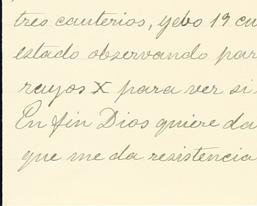 tres cauterios, y ebo 19 cu
estado observando par
rayos X para ver si
En fin Dios quiere da
que me da resistencia